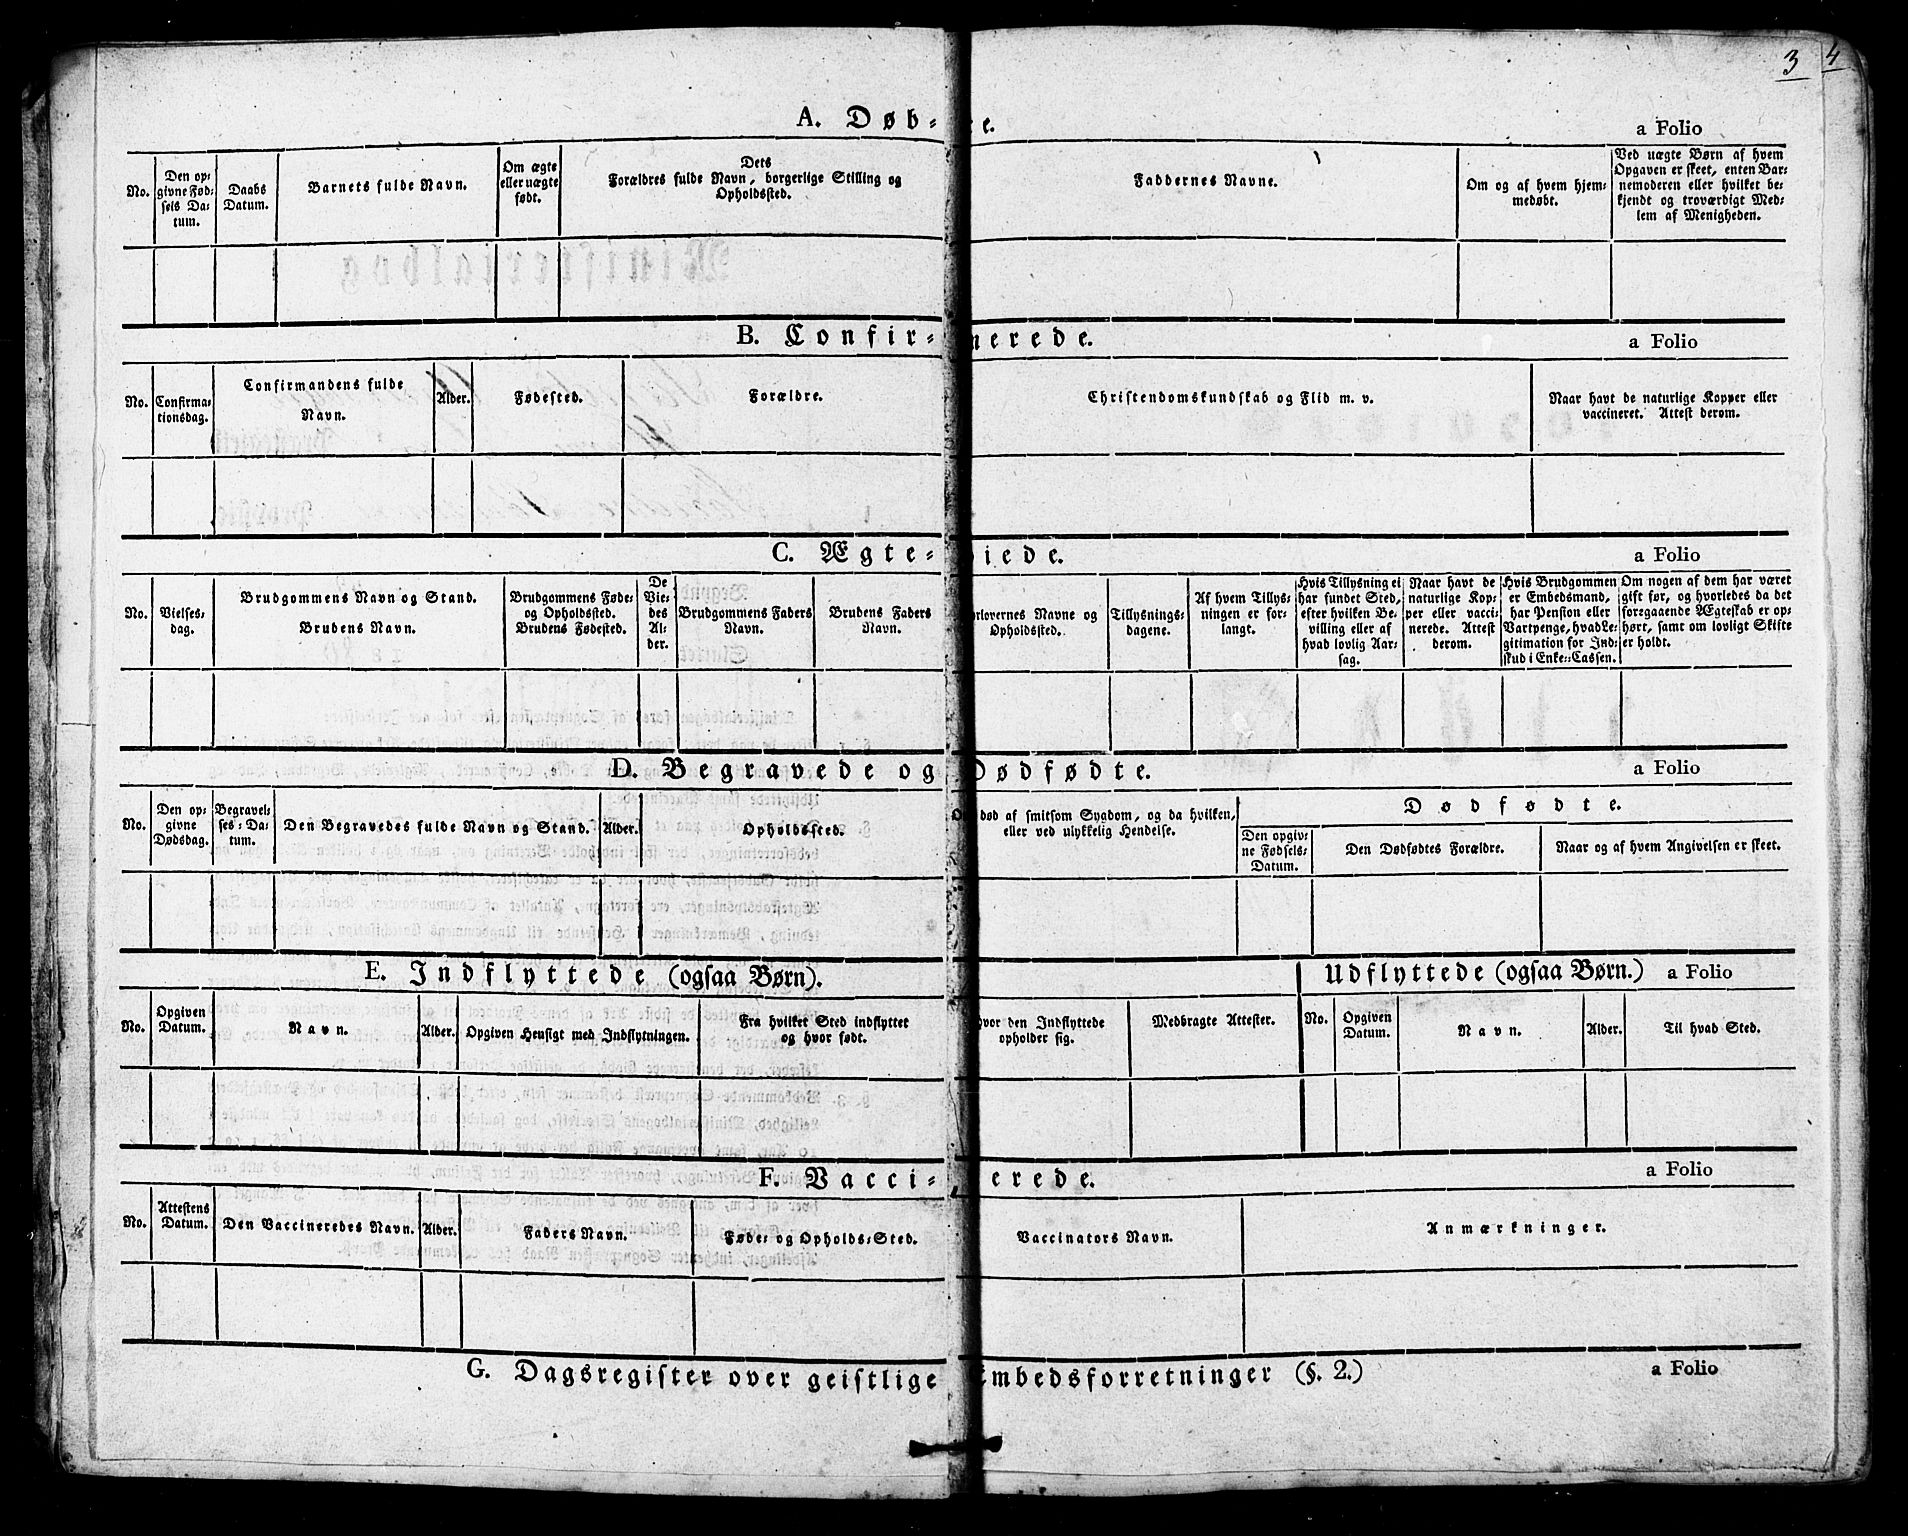 3 4
A. Døb- te.
a Folio
No.
Den op-
givne Fød-
sels Da-
tum.
Daabs
Datum.
Barnets fulde Navn.
Om ægte
eller uægte
født.
Dets
Forældres fulde Navn, borgerlige Stilling og
Opholdssted.
Faddernes Navne.
Om og af hvem hjem-
medøbt.
Ved uægte Børn af hvem
Opgaven er skeet, enten Bar-
nemoderen eller hvilket be-
kjendt og troværdigt Med-
lem af Menigheden.
B. Confir- merede.
a Folio
No.
Confirma-
tionsdag.
Confirmandens fulde
Navn.
Alder.
Fødested.
Forældre.
Christendomskundskab og Flid m. v.
Naar havt de naturlige Kopper eller
vaccineret. Attest derom.
C. Ægte- viede.
a Folio
No.
Vielses-
dag.
Brudgommens Navn og Stand.
Brudens Navn.
Brudgommens Føde-
og Opholdssted.
Brudens Fødested.
De
Vie-
des
Al-
der.
Brudgommens Faders
Navn.
Brudens Faders
Navn.
orlovernes Navne og
Opholdssted.
Tillysnings-
dagene.
Af hvem Tillys-
ningen er for-
langt.
Hvis Tillysning ei
har fundet Sted,
efter hvilken Be-
villing eller af
hvad lovlig Aar-
sag.
Naar havt de
naturlige Kop-
per eller vacci-
nerede. Attest
derom.
Hvis Brudgommen
er Embedsmand,
har Pension eller
Vartpenge, hvad Le-
gitimation for Ind-
skud i Enke-Cassen.
Om nogen af dem har været
gift før, og hvorledes da det
foregaaende Ægteskab er op-
hørt, samt om lovligt Skifte
er holdt.
D. Begravede og Dødfødte.
a Folio
No.
Den op-
givne
Dødsdag.
Begravel-
ses-Da-
tum.
Den Begravedes fulde Navn og Stand.
Alder.
Opholdssted.
død af smitsom Sygdom, og da hvilken,
eller ved ulykkelig Hendelse.
Dødfødte.
Den opgiv-
ne Fødsels-
Datum.
Den Dødfødtes Forældre.
Naar og af hvem Angivelsen er skeet.
E. Indflyttede (ogsaa Børn).
Udflyttede (ogsaa Børn.) a Folio
No.
Opgiven
Datum.
Navn.
Alder.
Opgiven Hensigt med Indflytningen.
Fra hvilket Sted indflyttet
og hvor født.
hvor den Indflyttede
opholder sig.
Medbragte Attester.
No.
Opgiven
Datum.
Navn.
Alder.
Til hvad Sted.
F. Vacci- nerede.
a Folio
No.
Attestens
Datum.
Den Vaccineredes Navn.
Alder.
Faders Navn.
Føde- og Opholds-Sted.
Vaccinators Navn.
Anmærkninger.
G. Dagsregister over geistlige Embedsforretninger (§. 2.)
a Folio